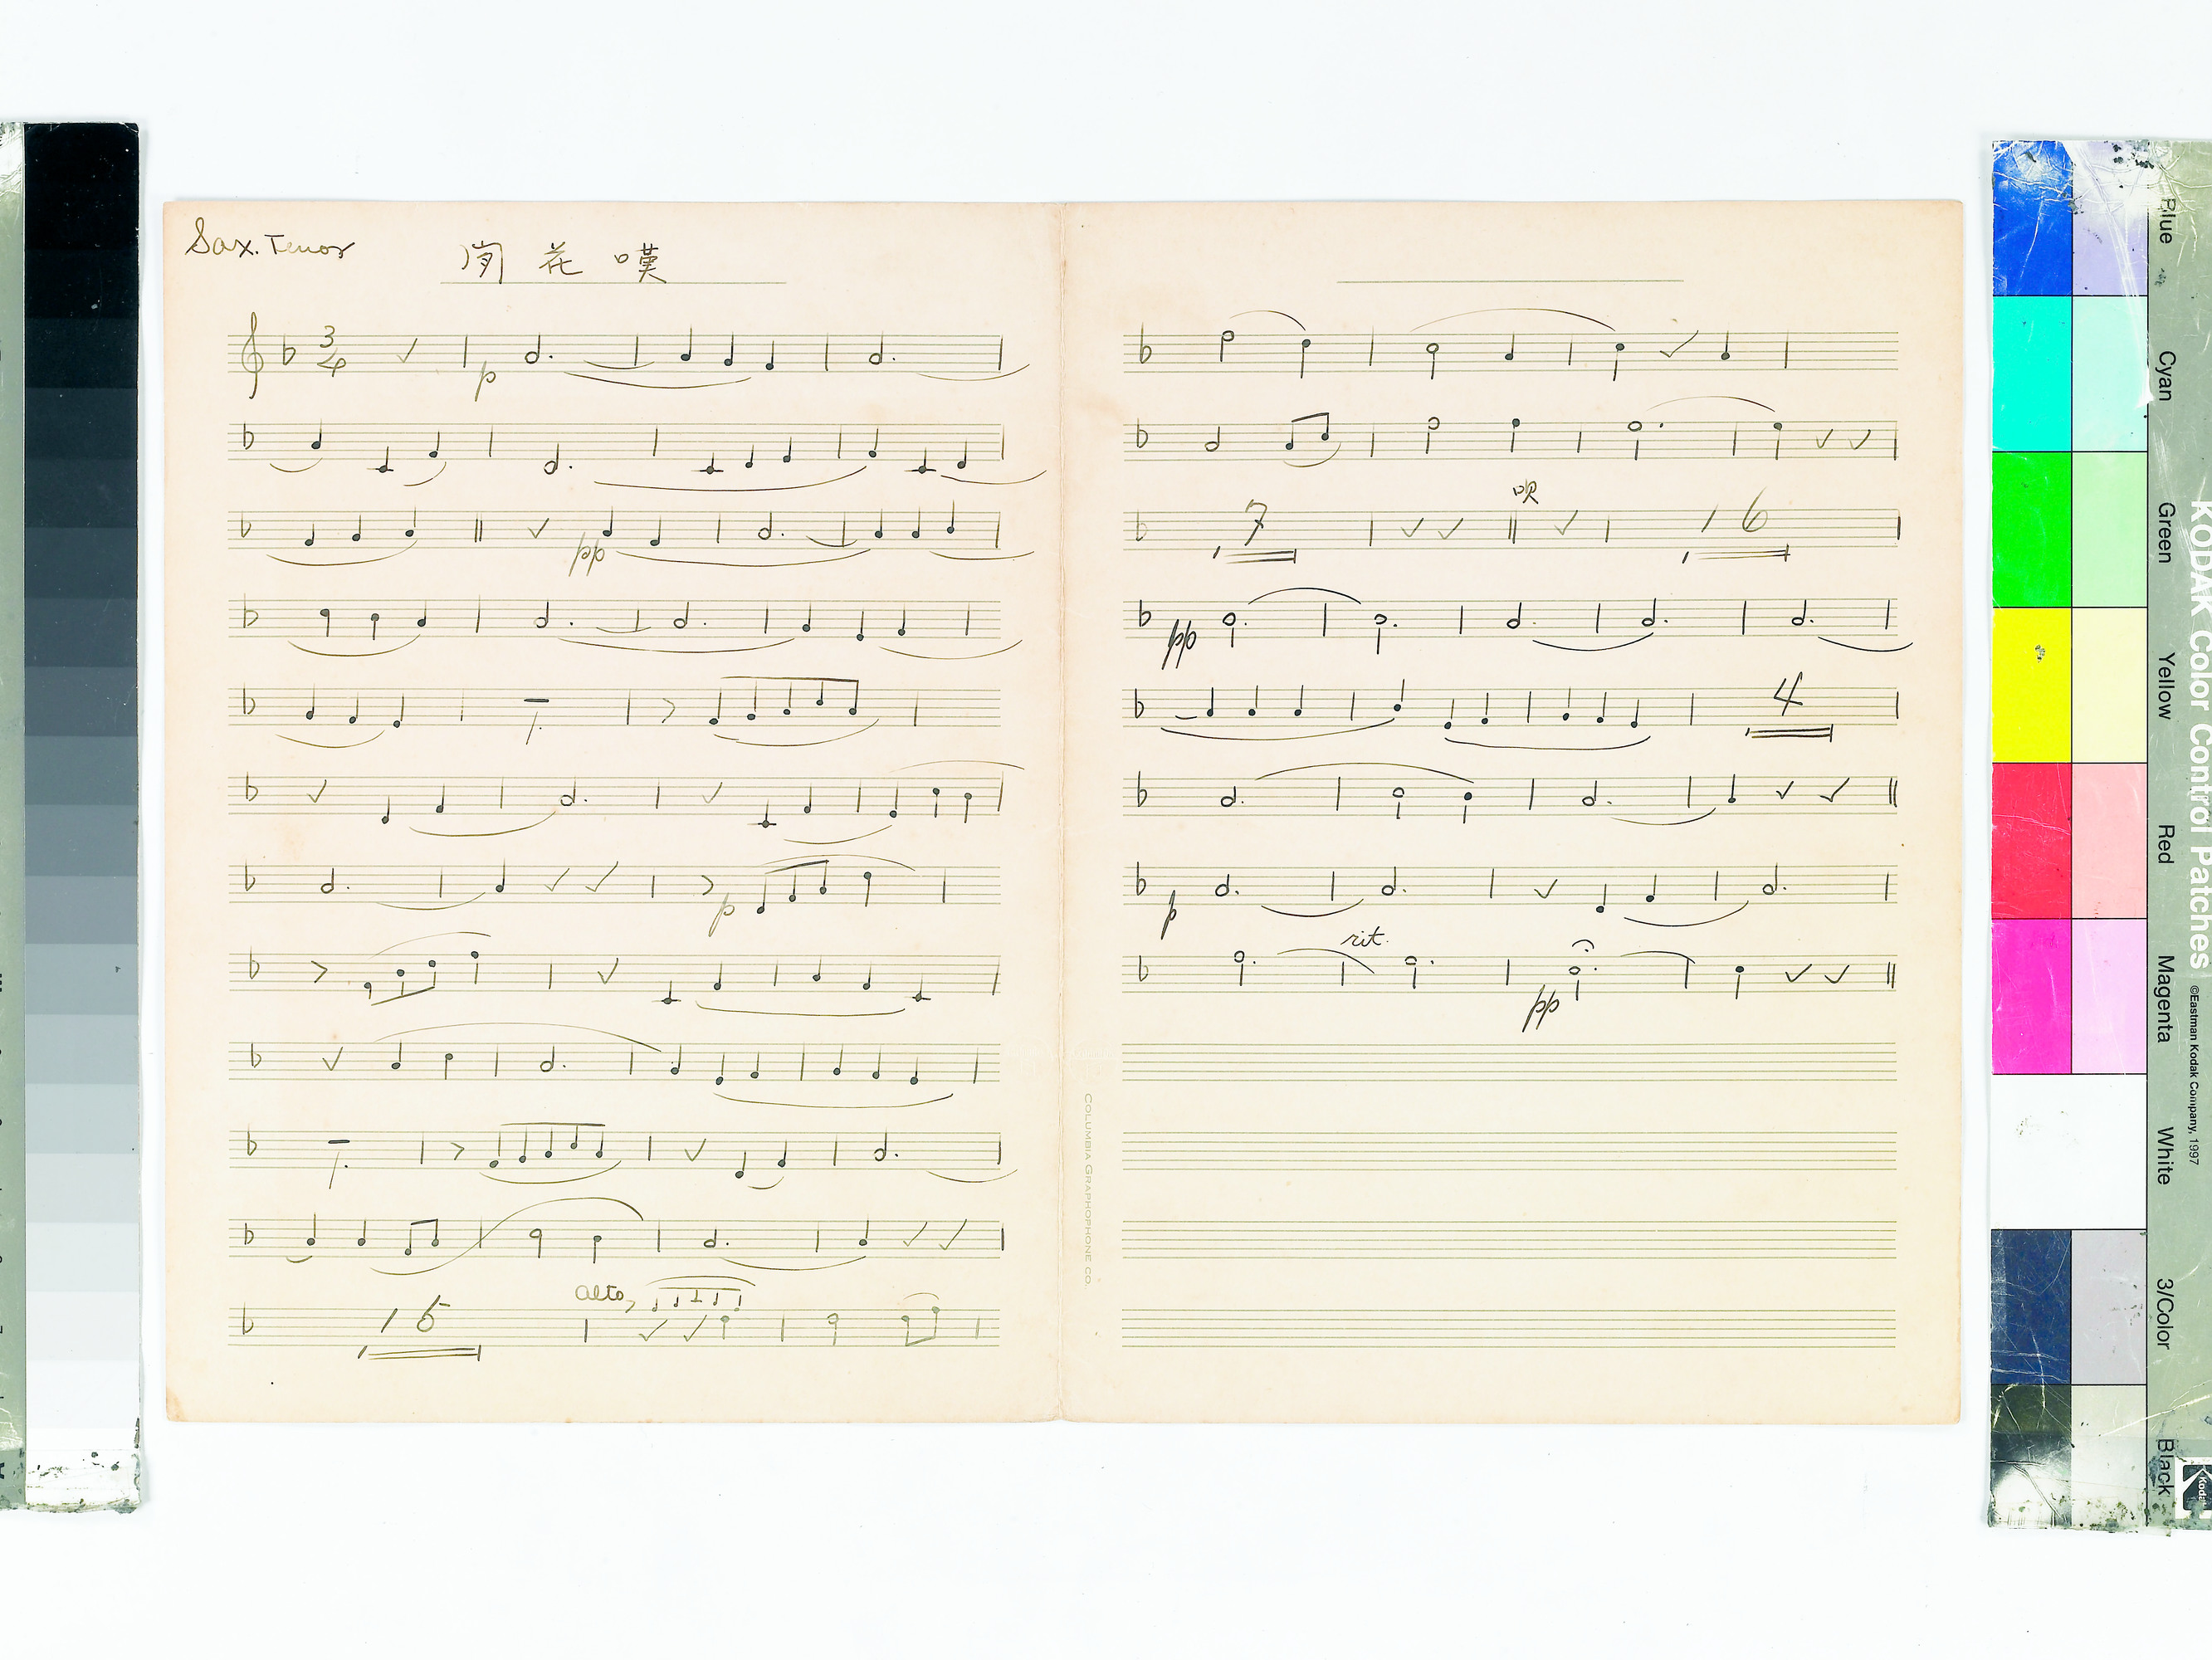 Sax. Tenor
花嘆
3
4
p
pp
p
alto
15
唄
7
16
pp
4
p
rit.
pp
COLUMBIA GRAPHOPHONE CO.
Blue
Cyan
Green
Yellow
Red
Magenta
White
3/Color
Black
KODAK Color Control Patches
©Eastman Kodak Company, 1997
Kodak